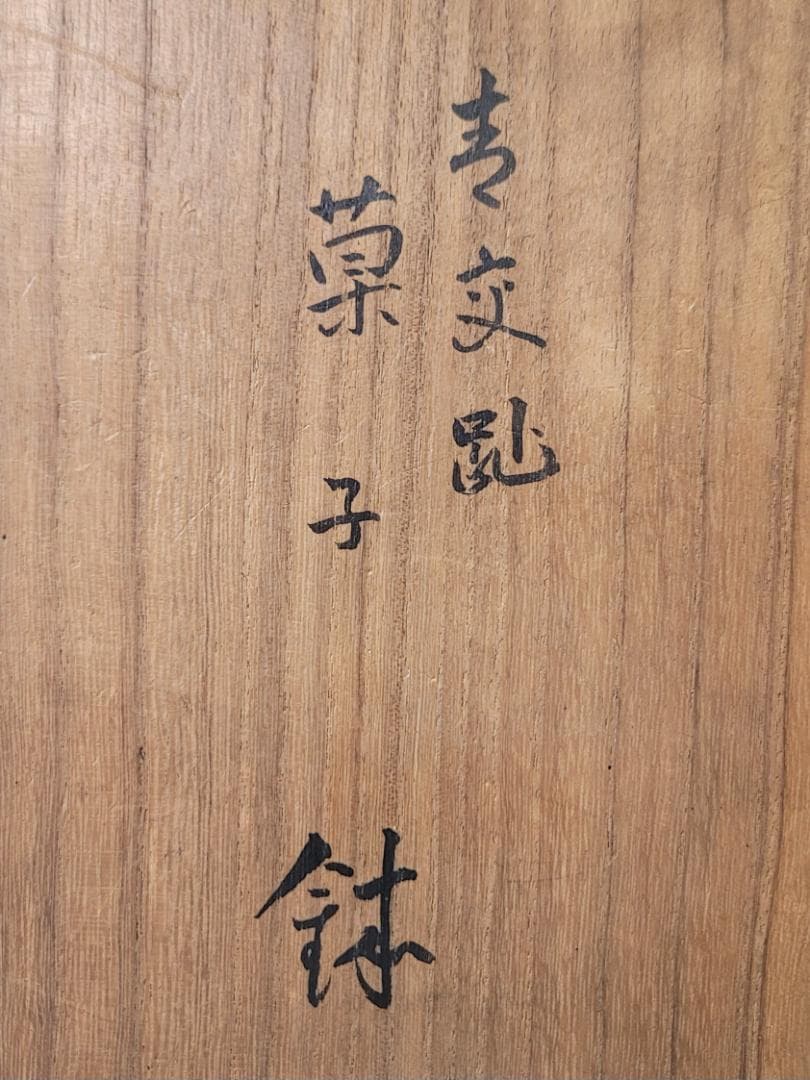 青交趾
菓子鉢